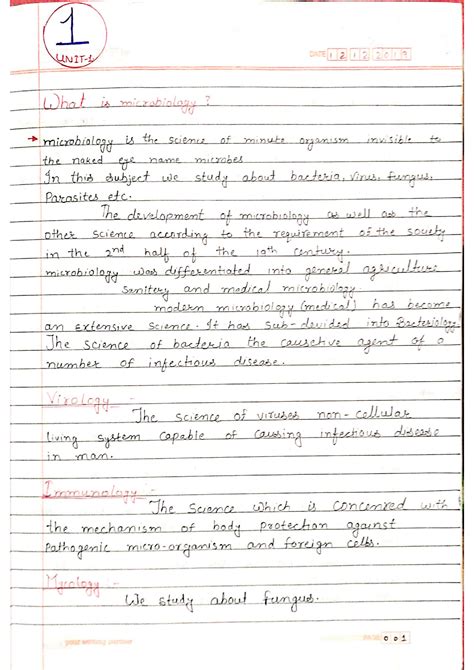 1
UNIT-1
DATE 12 12 2019
What is microbiology ?
→ microbiology is the science of minute organism invisible to
the naked eye name microbes
In this subject we study about bacteria, virus, fungus,
Parasites etc.
The development of microbiology as well as the
other science according to the requirement of the society
in the 2nd half of the 19th century.
microbiology was differentiated into general agriculture
sanitery and medical microbiology.
modern microbiology (medical) has become
an extensive science. It has sub-devided into Bacteriology
The science of bacteria the causctive agent of a
number of infectious disease.
Virology :-
The science of viruses non-cellular
living system capable of causing infectious disease
in man.
Immunology :-
The science which is concenred with
the mechanism of body protection against
pathogenic micro-organism and foreign cells.
Mycology :-
We study about fungus.
001